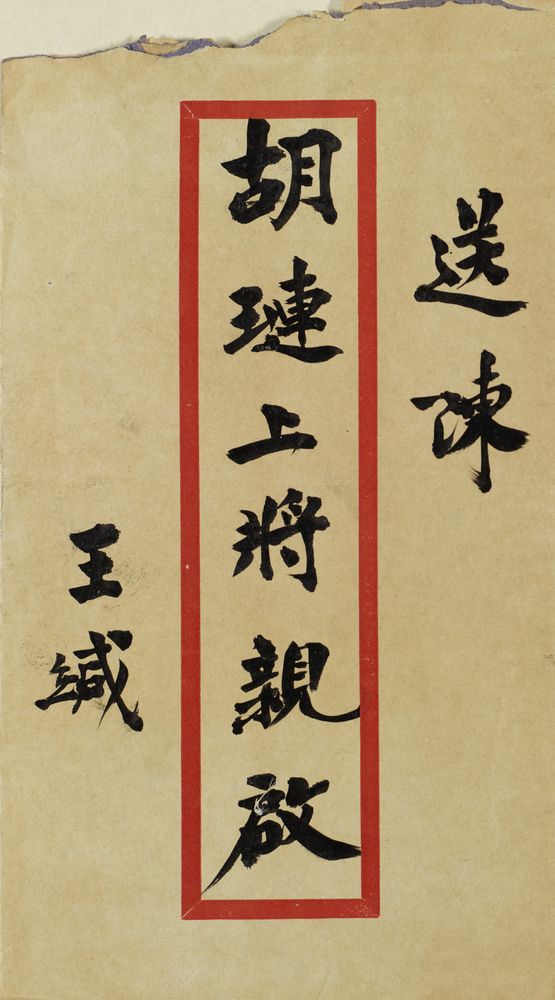 送陳
胡璉上將親啟
王緘